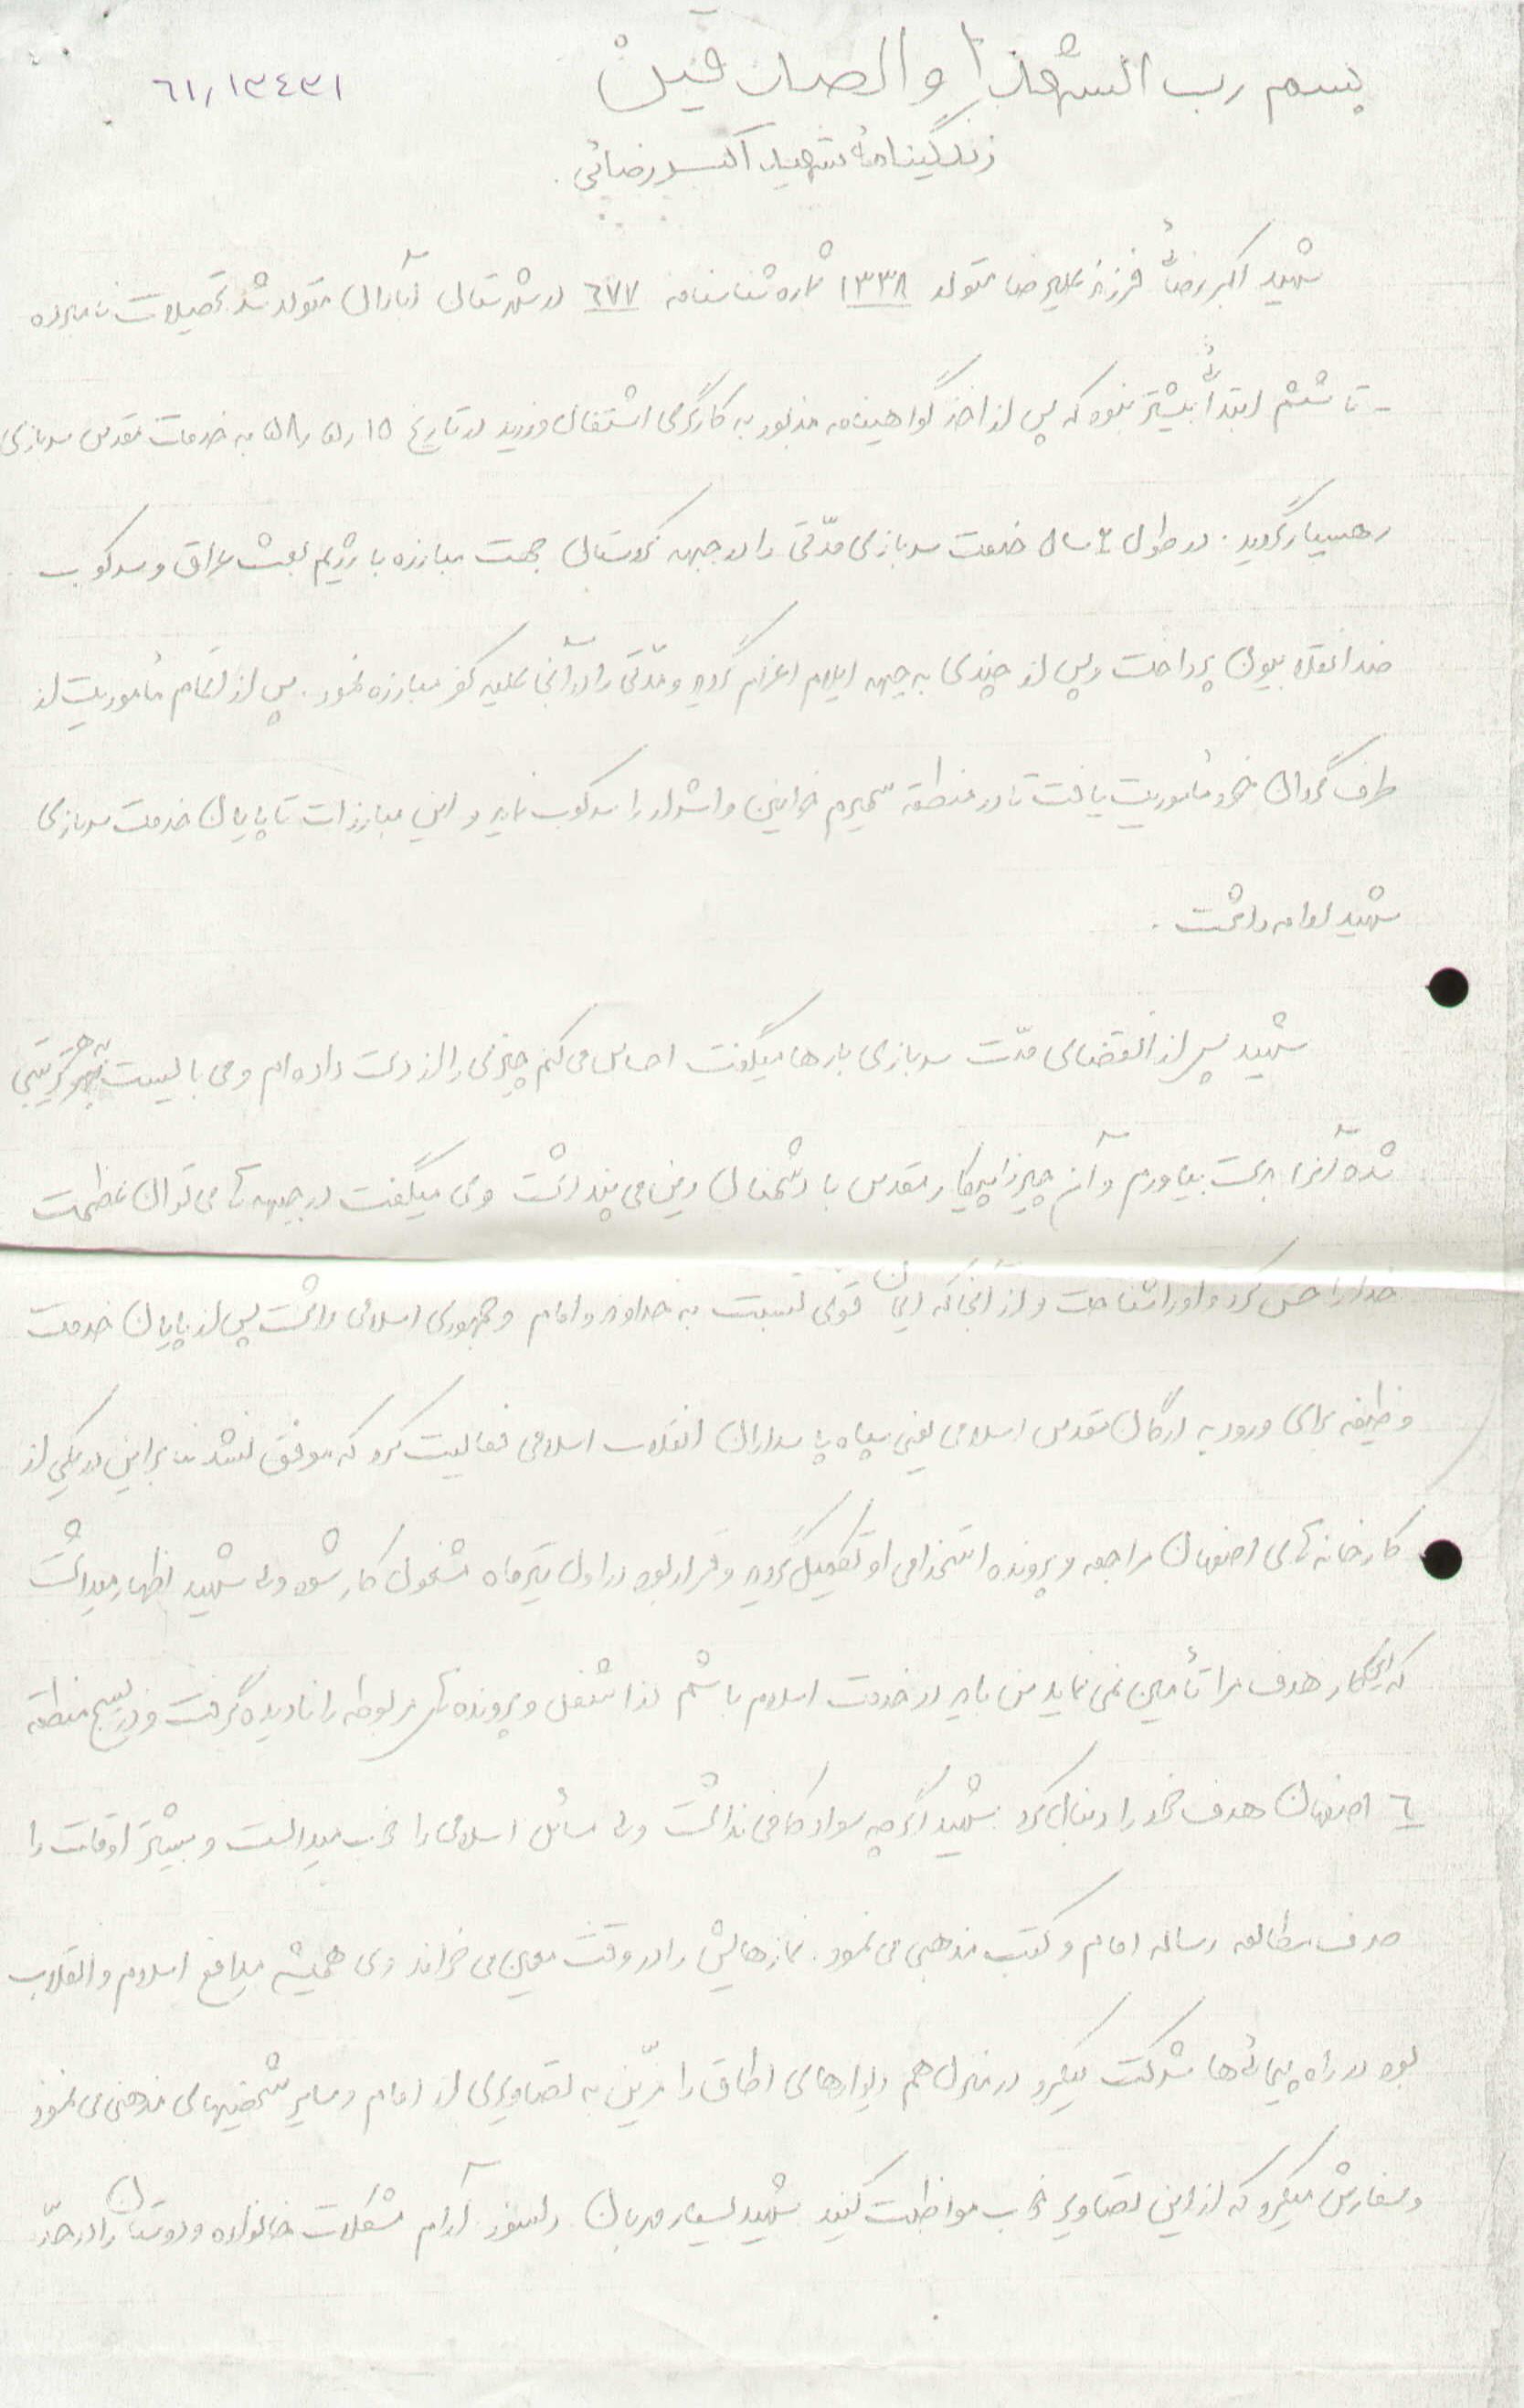 بسم رب الشهدا والصادقین
٦١/١٣٤٣١
زندگینامهٔ شهید اکبر رضائی.
شهید اکبر رضائی فرزند علیرضا متولد ١٣٣٨ شماره شناسنامه ٦٧٧ در شهرستان آبادان متولد شد تحصیلات نامبرده
تا ششم ابتدائی بیشتر نبود که پس از اخذ گواهینامه مذبور به کارگری اشتغال ورزید در تاریخ ١٥ر٥ر٥٨ به خدمات مقدس سربازی
رهسپار گردید. در طول ٢ سال خدمت سربازی مدّتی را در جبهه کردستان جهت مبارزه با رژیم بعث عراق و سرکوب
ضد انقلابیون پرداخت و پس از چندی به جبهه ایلام اعزام گردید و مدّتی را در آنجا علیه کفر مبارزه نمود. پس از اتمام مأموریت از
طرف گردان خود مأموریت یافت تا در منطقه سمیرم خوانین و اشرار را سرکوب نماید و این مبارزات تا پایان خدمت سربازی
شهید ادامه داشت.
شهید پس از انقضای مدّت سربازی بارها میگفت احساس می کنم چیزی را از دست داده ام و می بایست به هر ترتیبی
شده آنرا بدست بیاورم و آن چیز را پیکار مقدس با دشمنان دین می پنداشت وی میگفت در جبهه ها می توان عظمت
خدا را حس کرد و او را شناخت و از آنجا که ایمان قوی نسبت به خداوند و امام و جمهوری اسلامی داشت پس از پایان خدمت
وظیفه برای ورود به ارگان مقدس اسلامی یعنی سپاه پاسداران انقلاب اسلامی فعالیت کرد که موفق نشد بنابراین در یکی از
کارخانه های اصفهان مراجعه و پرونده استخدامی او تکمیل گردید و قرار بود در اول تیرماه مشغول کار شود ولی شهید اظهار میداشت
که این کار هدف مرا تأمین نمی نماید من باید در خدمت اسلام باشم لذا شغل و پرونده های مربوطه را نادیده گرفت و در بسیج منطقه
٦ اصفهان هدف خود را دنبال کرد شهید اگرچه سواد کافی نداشت ولی مسائل اسلامی را خوب میدانست و بیشتر اوقات را
صرف مطالعه رساله امام و کتب مذهبی می نمود. نمازهایش را در وقت معین می خواند وی همیشه مدافع اسلام و انقلاب
بود در راه پیمائی ها شرکت میکرد در منزل هم دیوارهای اطاق را مزّین به تصاویری از امام و سایر شخصیتهای مذهبی می نمود
و سفارش میکرد که از این تصاویر خوب مواظبت کنید شهید بسیار مهربان دلسوز آرام مشکلات خانواده و دوستان را در حدّ